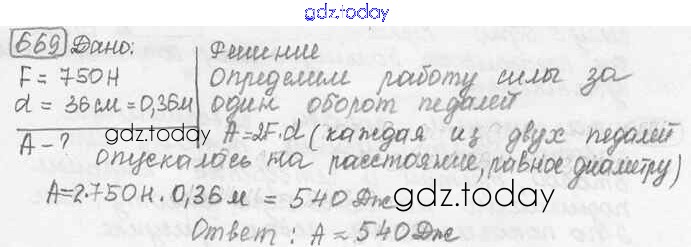 gdz.today
669 Дано: Решение
F = 750Н Определим работу силы за
d = 36см = 0,36м один оборот педалей
A - ? gdz.today A = 2F·d (каждая из двух педалей
опускалась на расстояние, равное диаметру)
A = 2·750Н·0,36м = 540Дж
gdz.today
Ответ: A = 540Дж